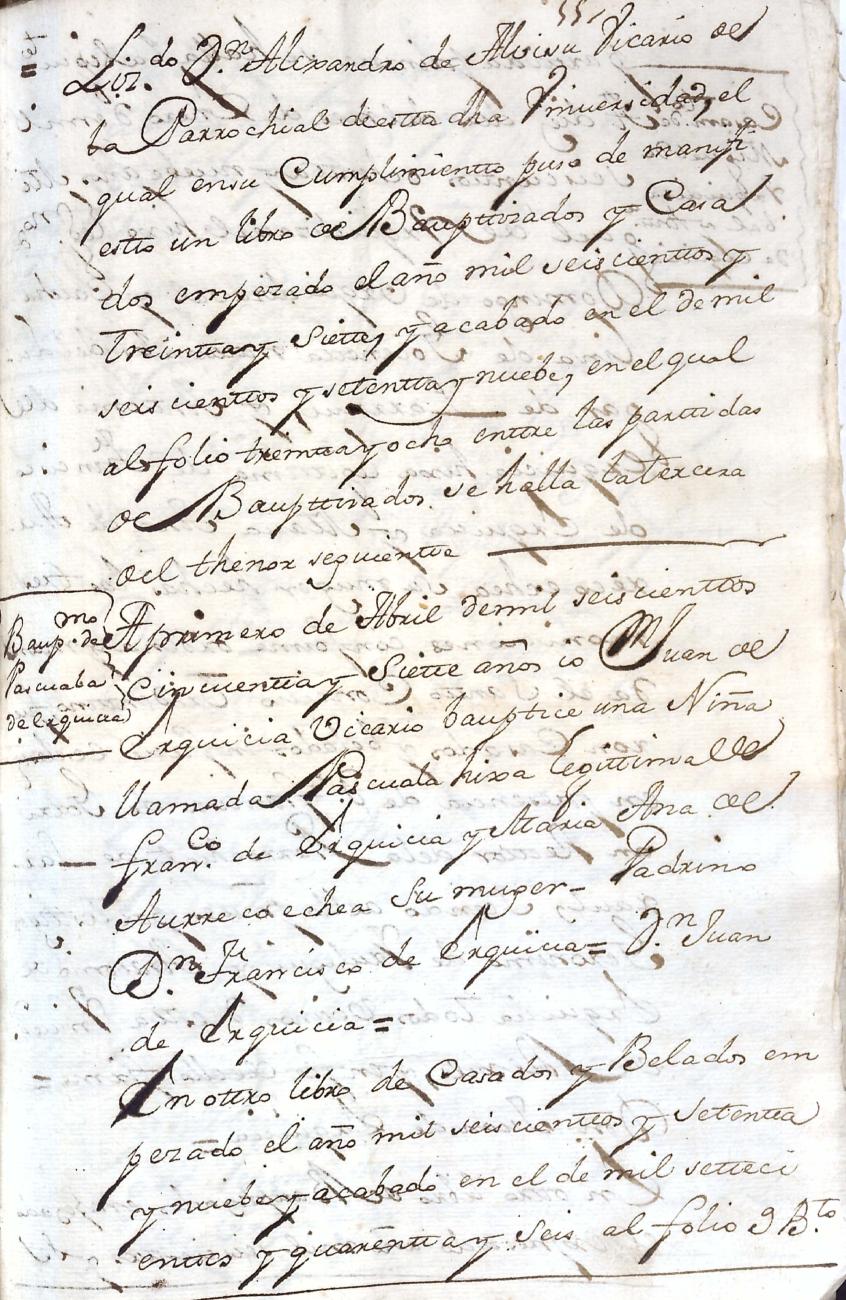 Liz.do D.n Alexandro de Alvisu Vicario de
la Parrochial de esta dha Vniversidad, el
qual en su Cumplimiento puso de manifi
esto un libro de Bauptizados y Casa
dos empezado el año mil seiscienttos y
Treintta y Siette, y acabado en el de mil
seis cienttos y setentta y nuebe, en el qual
al folio treintta y ocho enttre las parttidas
de Bauptizados se halla la tercera
del thenor seguiente
Baup.mo de
Pascuala
de Erquicia
A primero de Abril de mil seiscienttos
cincuentta y Siette años io M Juan de
Erquicia Vicario bauptice una Niña
llamada Pascuala hixa legittima de
fran.co de Erquicia y Maria Ana de
Aurrecoechea su muger = Padrino
D.n Francisco de Erquicia = D.n Juan
de Erquicia =
En ottro libro de Casados y Belados em
pezado el año mil seiscienttos y setentta
y nuebe y acabado en el de mil setteci
enttos y quarentta y seis al folio 9 B.to